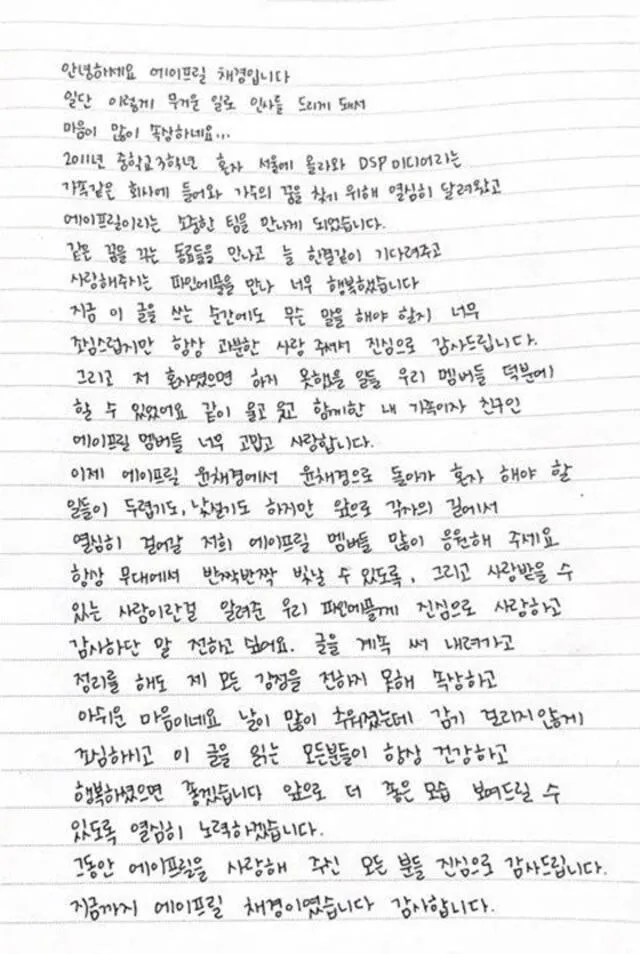 안녕하세요 에이프릴 채경입니다
일단 이렇게 무거운 일로 인사를 드리게 돼서
마음이 많이 속상하네요...
2011년 중학교 3학년 혼자 서울에 올라와 DSP미디어라는
가족같은 회사에 들어와 가수의 꿈을 찾기 위해 열심히 달려왔고
에이프릴이라는 소중한 팀을 만나게 되었습니다.
같은 꿈을 꾸는 동료들을 만나고 늘 한결같이 기다려주고
사랑해주시는 파인에플을 만나 너무 행복했습니다
지금 이 글을 쓰는 순간에도 무슨 말을 해야 할지 너무
조심스럽지만 항상 과분한 사랑 주셔서 진심으로 감사드립니다.
그리고 저 혼자였으면 하지 못했을 일들 우리 멤버들 덕분에
할 수 있었어요 같이 울고 웃고 함께한 내 가족이자 친구인
에이프릴 멤버들 너무 고맙고 사랑합니다.
이제 에이프릴 윤채경에서 윤채경으로 돌아가 혼자 해야 할
일들이 두렵기도, 낯설기도 하지만 앞으로 각자의 길에서
열심히 걸어갈 저희 에이프릴 멤버들 많이 응원해 주세요
항상 무대에서 반짝반짝 빛날 수 있도록, 그리고 사랑받을 수
있는 사람이란걸 알려준 우리 파인에플께 진심으로 사랑하고
감사하단 말 전하고 싶어요. 글을 계속 써 내려가고
정리를 해도 제 모든 감정을 전하지 못해 속상하고
아쉬운 마음이네요 날이 많이 추워졌는데 감기 걸리지않게
조심하시고 이 글을 읽는 모든분들이 항상 건강하고
행복하셨으면 좋겠습니다 앞으로 더 좋은 모습 보여드릴 수
있도록 열심히 노력하겠습니다.
그동안 에이프릴을 사랑해 주신 모든 분들 진심으로 감사드립니다.
지금까지 에이프릴 채경이였습니다 감사합니다.